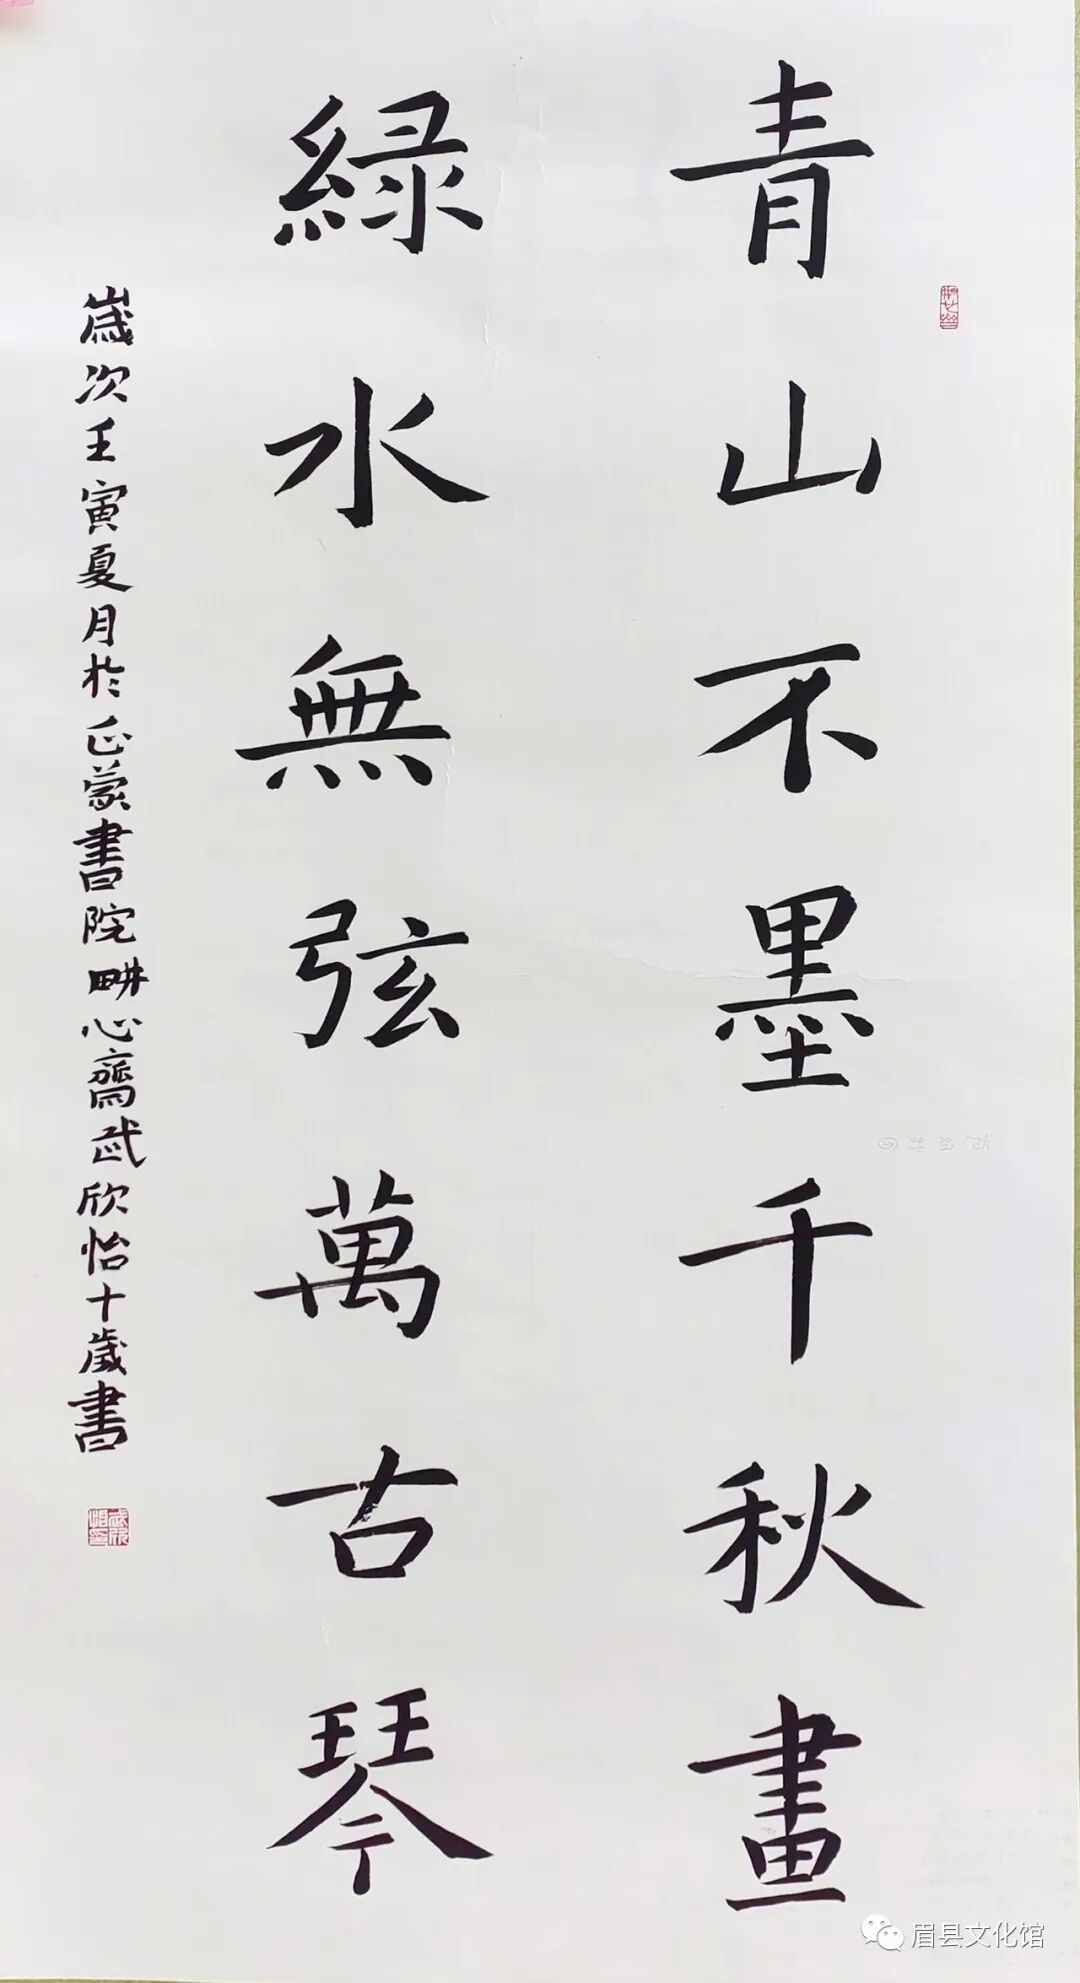 青山不墨千秋畫
緑水無弦萬古琴
歲次壬寅夏月於正蒙書院畊心齋武欣怡十歲書
眉县文化馆